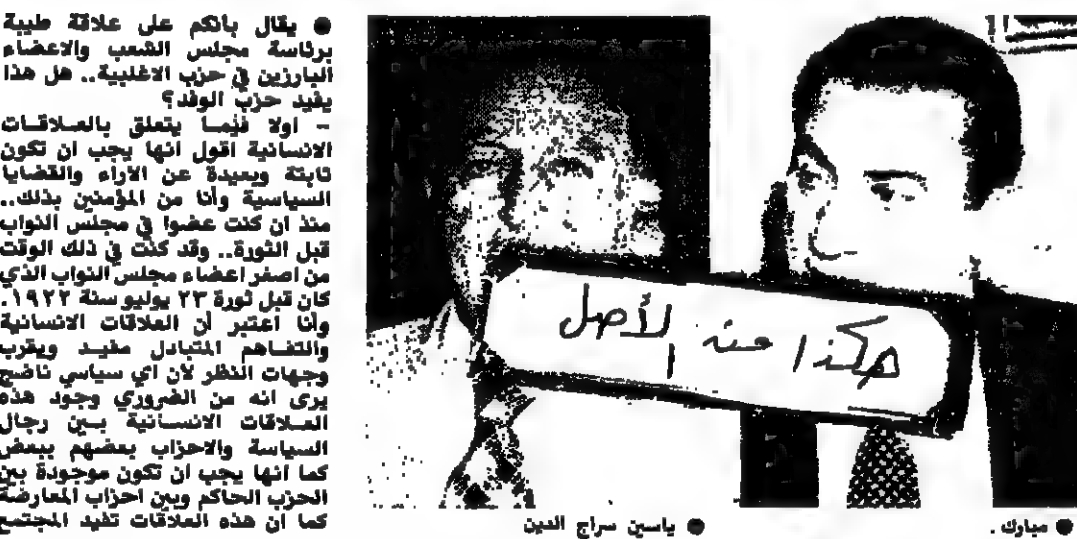 ● يقال بأنكم على علاقة طيبة
برئاسة مجلس الشعب والاعضاء
البارزين في حزب الاغلبية.. هل هذا
يفيد حزب الوفد؟
- اولا فيما يتعلق بالعلاقات
الانسانية اقول انها يجب ان تكون
ثابتة وبعيدة عن الاراء والقضايا
السياسية وأنا من المؤمنين بذلك..
منذ ان كنت عضوا في مجلس النواب
قبل الثورة.. وقد كنت في ذلك الوقت
من اصغر اعضاء مجلس النواب الذي
كان قبل ثورة ٢٣ يوليو سنة ١٩٢٢.
وأنا اعتبر أن العلاقات الانسانية
والتفاهم المتبادل مفيد ويقرب
وجهات النظر لان اي سياسي ناضج
يرى انه من الضروري وجود هذه
العلاقات الانسانية بين رجال
السياسة والاحزاب بعضهم ببعض
كما انها يجب ان تكون موجودة بين
الحزب الحاكم وبين احزاب المعارضة
كما ان هذه العلاقات تفيد المجتمع
هكذا منه الأصل
● مبارك.
● ياسين سراج الدين